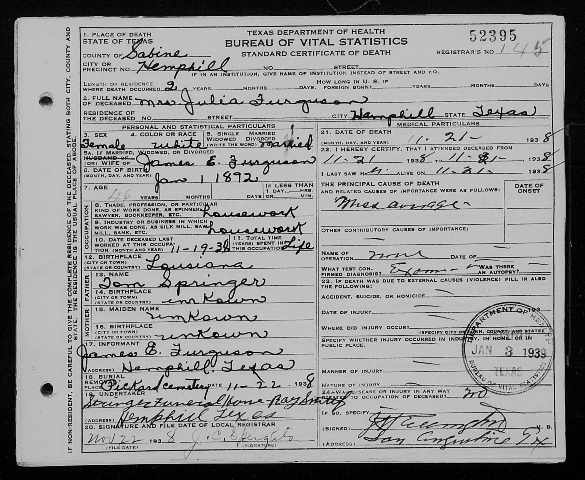 TEXAS DEPARTMENT OF HEALTH
BUREAU OF VITAL STATISTICS
STANDARD CERTIFICATE OF DEATH
52395
REGISTRAR'S NO. 145
1. PLACE OF DEATH
STATE OF TEXAS
COUNTY OF Sabine
CITY OR PRECINCT NO. Hemphill NO. STREET
IF IN AN INSTITUTION, GIVE NAME OF INSTITUTION INSTEAD OF STREET AND NO.
LENGTH OF RESIDENCE WHERE DEATH OCCURRED 2 YEARS MONTHS DAYS HOW LONG IN U. S. IF FOREIGN BORN? YEARS MONTHS DAYS
2. FULL NAME OF DECEASED Mrs Julia Furguson
RESIDENCE OF THE DECEASED NO. STREET CITY Hemphill STATE Texas
PERSONAL AND STATISTICAL PARTICULARS
3. SEX Female
4. COLOR OR RACE White
5. SINGLE MARRIED WIDOWED DIVORCED Married
5A. IF MARRIED, WIDOWED, OR DIVORCED
HUSBAND OF (OR) WIFE OF James E. Furguson
6. DATE OF BIRTH (MONTH, DAY, AND YEAR) Jan 1 1892
7. AGE 46 YEARS MONTHS DAYS IF LESS THAN 1 DAY
8. TRADE, PROFESSION, OR PARTICULAR KIND OF WORK DONE, AS SPINNER, SAWYER, BOOKKEEPER, ETC. housework
9. INDUSTRY OR BUSINESS IN WHICH WORK WAS DONE, AS SILK MILL, SAW MILL, BANK, ETC. housework
10. DATE DECEASED LAST WORKED AT THIS OCCUPATION (MONTH AND YEAR) 11-19-38
11. TOTAL TIME (YEARS) SPENT IN THIS OCCUPATION Life
12. BIRTHPLACE (CITY OR TOWN) (STATE OR COUNTRY) Lousiana
13. NAME Tom Springer
14. BIRTHPLACE (CITY OR TOWN) (STATE OR COUNTRY) unkown
15. MAIDEN NAME unkown
16. BIRTHPLACE (CITY OR TOWN) (STATE OR COUNTRY) unkown
17. INFORMANT James E. Furguson
(ADDRESS) Hemphill Texas
18. BURIAL REMOVAL
PLACE Pickard Cemetery 11-22 1938
19. UNDERTAKER Funeral Home Ray
(ADDRESS) Hemphill Texas
20. SIGNATURE AND FILE DATE OF LOCAL REGISTRAR
Nov 22 1938 J. C.
(FILE DATE) (SIGNATURE)
MEDICAL PARTICULARS
21. DATE OF DEATH
(MONTH, DAY, AND YEAR) 11-21- 1938
22. I HEREBY CERTIFY, THAT I ATTENDED DECEASED FROM
11-21 1938 11-21- 1938
I LAST SAW 11-21- 1938
THE PRINCIPAL CAUSE OF DEATH AND RELATED CAUSES OF IMPORTANCE WERE AS FOLLOWS:
DATE OF ONSET
OTHER CONTRIBUTORY CAUSES OF IMPORTANCE:
NAME OF OPERATION none
WHAT TEST CONFIRMED DIAGNOSIS? WAS THERE AN AUTOPSY?
23. IF DEATH WAS DUE TO EXTERNAL CAUSES (VIOLENCE) FILL IN ALSO THE FOLLOWING:
ACCIDENT, SUICIDE, OR HOMICIDE
DATE OF INJURY
WHERE DID INJURY OCCUR?
(SPECIFY CITY OR TOWN, COUNTY AND STATE)
SPECIFY WHETHER INJURY OCCURRED IN INDUSTRY, IN HOME, OR IN PUBLIC PLACE.
MANNER OF INJURY
NATURE OF INJURY
24. WAS DISEASE OR INJURY IN ANY WAY RELATED TO OCCUPATION OF DECEASED? no
IF SO, SPECIFY
(SIGNED) M. D.
(ADDRESS) San Augustine Tx
JAN 3 1939
TEXAS
BUREAU OF VITAL STATISTICS